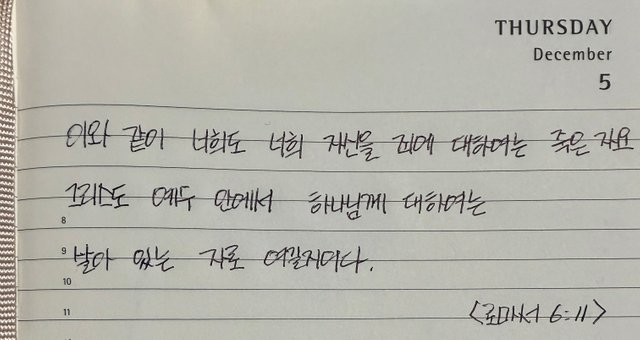 THURSDAY
December
5
이와 같이 너희도 너희 자신을 죄에 대하여는 죽은 자요
그리스도 예수 안에서 하나님께 대하여는
8
살아 있는 자로 여길지어다.
9
10
<로마서 6:11>
11